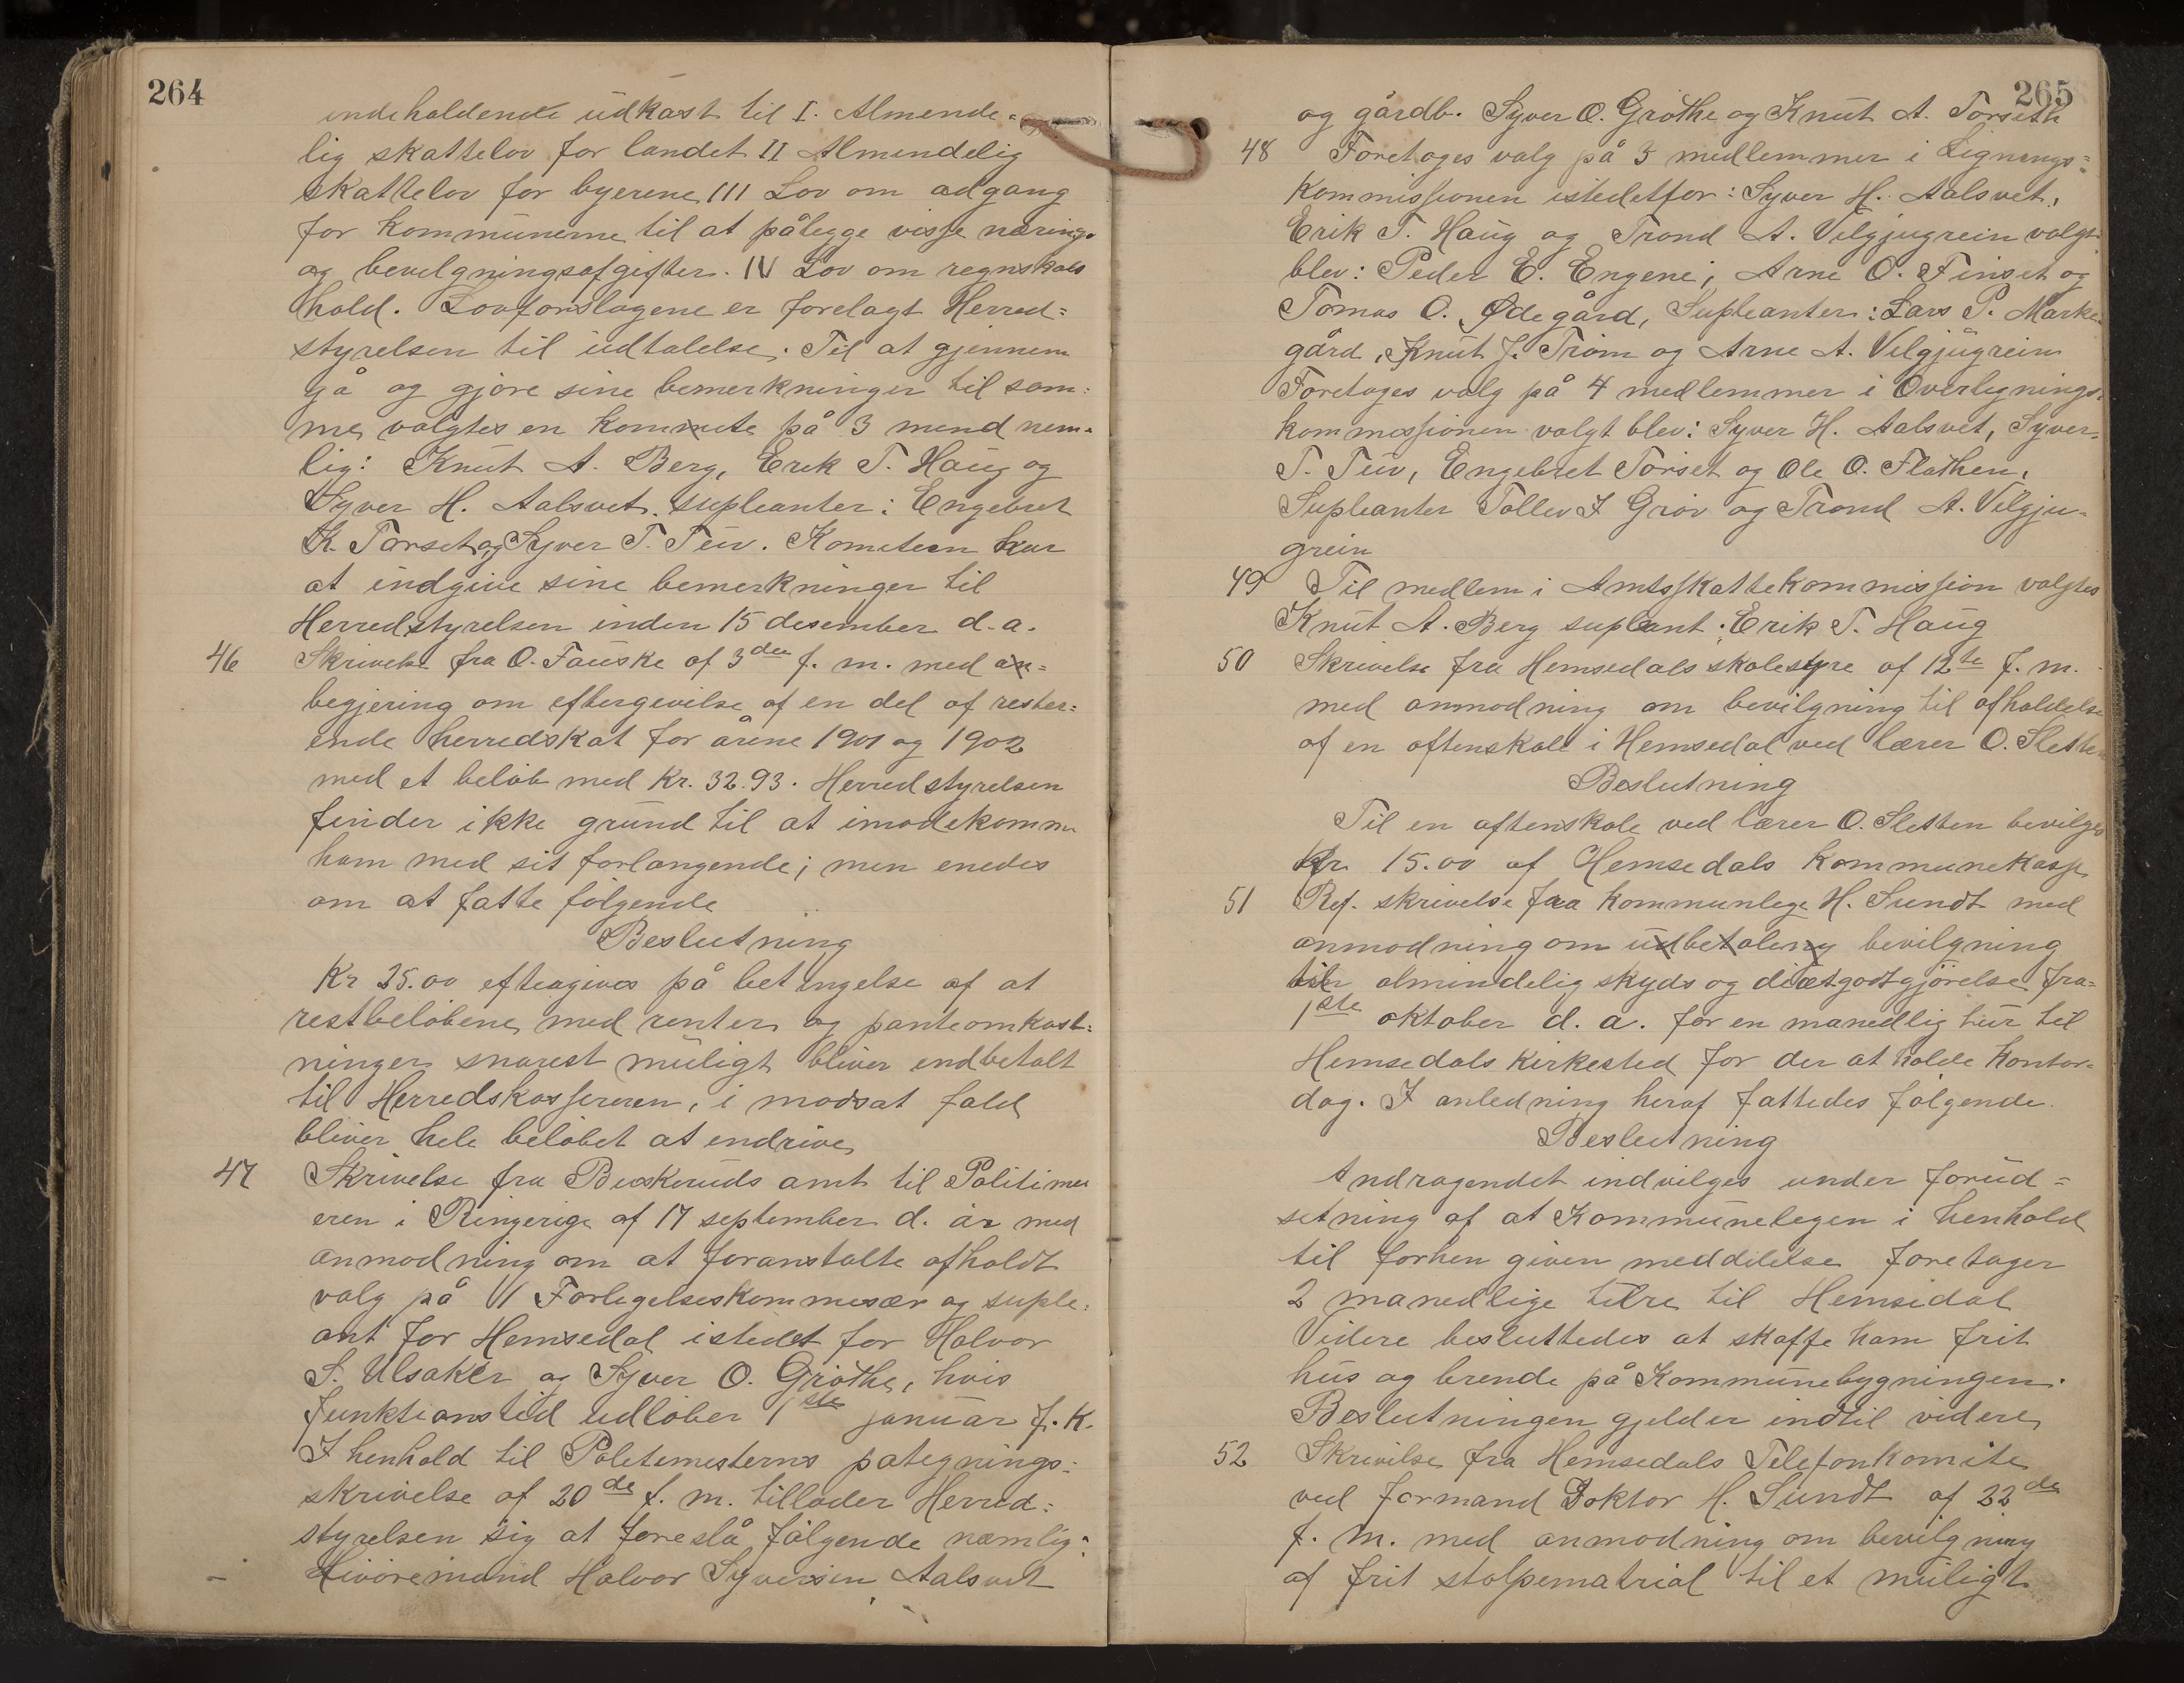 264
indeholdende udkast til I. Almende=
lig skattelov for landet II Almindelig
skattelov for byerene III Lov om adgang
for kommunerne til at pålegge visse nærings
og bevilgningsafgifter. IV Lov om regnskabs
hold. Lovforslagene er forelagt Herred=
styrelsen til udtalelse. Til at gjennem
gå og gjøre sine bemerkninger til sam=
me valgtes en komite på 3 mend nem=
lig: Knut A. Berg, Erik T. Haug og
Syver H. Aalsvet. supleanter: Engebret
K. Torset og Syver T. Tuv. Komiteen har
at indgive sine bemerkninger til
Herredstyrelsen inden 15 desember d.a.
46 Skrivelse fra O. Fauske af 3den f. m. med
begjering om eftergivelse af en del af rester=
ende herredskat for årene 1901 og 1902
med et beløb med Kr. 32.93. Herredstyrelsen
finder ikke grund til at imødekomme
ham med sit forlangende; men enedes
om at fatte følgende
Beslutning
Kr 25.00 eftergives på betingelse af at
restbeløbene med renter og panteomkost=
ninger snarest muligt bliver indbetalt
til Herredskassereren, i modsat fald
bliver hele beløbet at inddrive
47 Skrivelse fra Buskeruds amt til Politimes
eren i Ringerige af 17 september d. år med
anmodning om at foranstalte afholdt
valg på 1 Forlegelseskommesær og suple=
ant for Hemsedal istedet for Halvor
S. Ulsaker og Syver O. Grøthe, hvis
funktionstid udløber 1ste januar f. K.
I henhold til Politimesterns pategnings=
skrivelse af 20de f. m. tillader Herred=
styrelsen sig at foreslå følgende næmlig:
Halvor Syversen Aalsvet
265
og gårdb. Syver O. Grøthe og Knut A. Torseth
48 Foretoges valg på 3 medlemmer i Lignings=
kommissionen istedetfor: Syver H. Aalsvet,
Erik T. Haug og Trond A. Vilgjugrein valgt
blev: Peder E. Engene, Arne O. Finset og
Tomas O. Ødegård, Supleanter: Lars P. Marke=
gård, Knut J. Trøm og Arne A. Vilgjugrein
Foretoges valg på 4 medlemmer i Overlignings=
kommissionen valgt blev: Syver H. Aalsvet, Syver
T. Tuv, Engebret Torset og Ole O. Flathen,
Supleanter Tollev I Grøv og Trond A. Vilgju=
grein
49 Til medlem i Amtsskattekommission valgtes
Knut A. Berg supleant: Erik T. Haug
50 Skrivelse fra Hemsedals skolestyre af 12te f. m.
med anmodning om bevilgning til afholdelse
af en aftenskole i Hemsedal ved lærer O. Sletten
Beslutning
Til en aftenskole ved lærer O. Sletten bevilges
Kr. 15.00 af Hemsedals kommunekasse
51 Ref. skrivelse fra kommunlege H. Sundt med
anmodning om udbetaling bevilgning
til almindelig skyds og diætgodtgjørelse fra
1ste oktober d. a. for en manedlig tur til
Hemsedals kirkested for der at holde kontor=
dag. I anledning heraf fattedes følgende
Beslutning
Andragendet indvilges under forud=
setning af at Kommunelegen i henhold
til forhen given meddelelse foretager
2 manedlige ture til Hemsedal
Videre besluttedes at skaffe ham frit
hus og brende på Kommunebygningen.
Beslutningen gjelder indtil videre
52 Skrivelse fra Hemsedals Telefonkomite
ved formand Doktor H. Sundt af 22de
f. m. med anmodning om bevilgning
af frit stolpematrial til et muligt